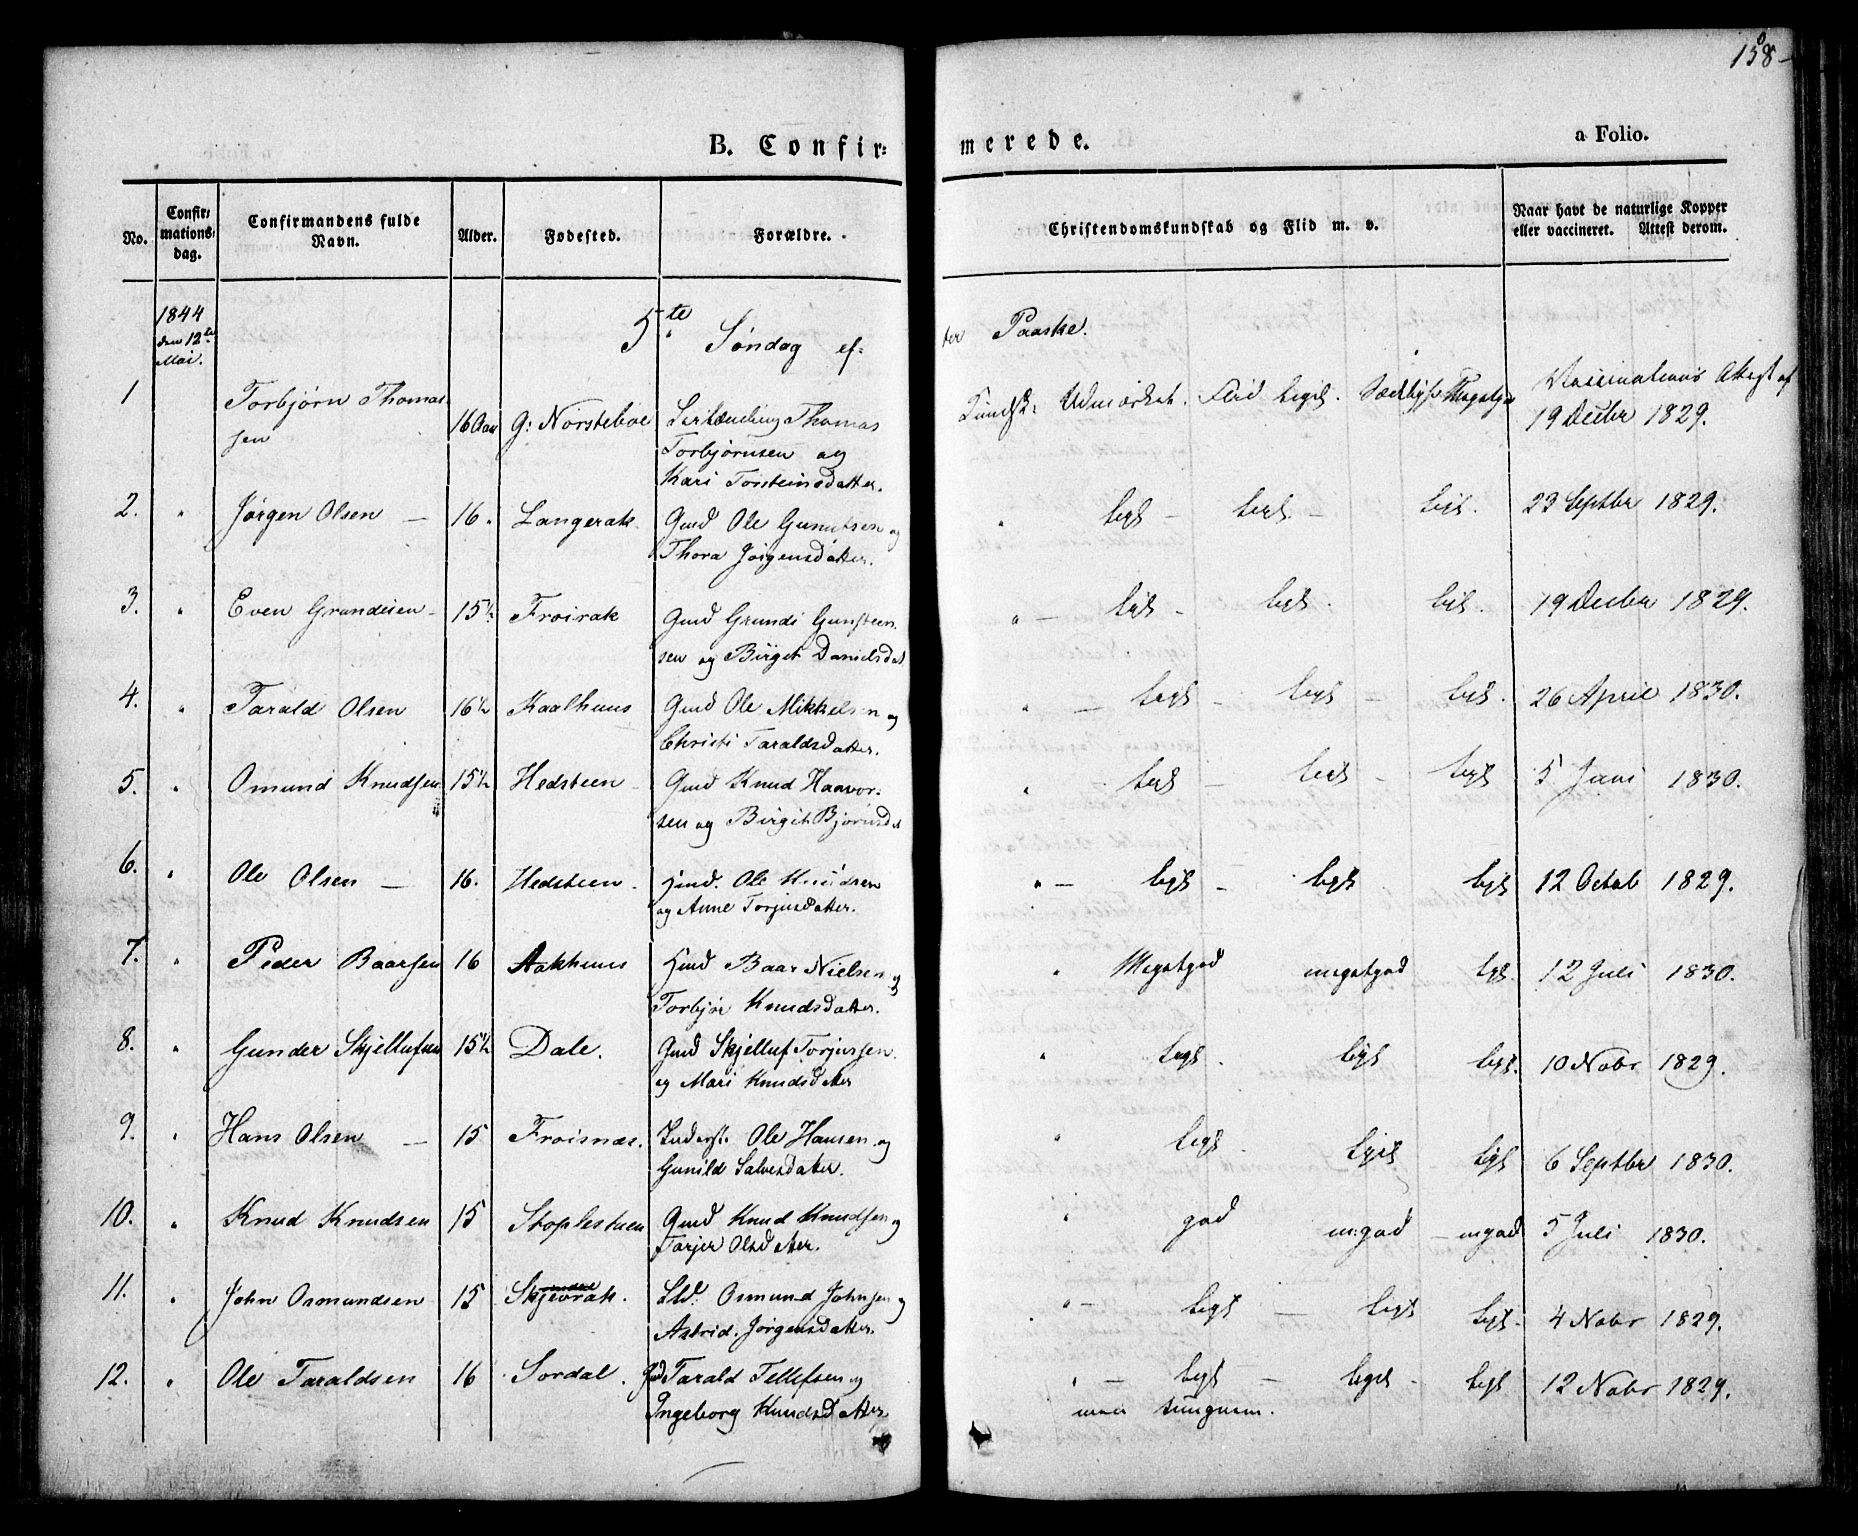 158
B. Confir= merede.
a Folio.
No.
Confir=
mations=
dag.
Confirmandens fulde
Navn.
Alder.
Fødested.
Forældre.
Christendomskundskab og Flid m. v.
Naar havt de naturlige Kopper
eller vaccineret. Attest derom.
1844
den 12te
Mai.
5te Søndag ef= ter Paaske.
1 Torbjørn Thomas
sen
16 Aar G: Norsteboe
Thomas
Torbjørnsen og
Kari Torsteinsdatter.
Kundsk: Udmærket. Flid ligel. Megetgod
Vaccinations Attest af
19 Decbr 1829.
2. " Jørgen Olsen — 16. Langerak. Gmd Ole Gunutsen og
Thora Jørgensdatter.
" ligl — ligl — ligl. 23 Septbr 1829.
3. " Even Grundesen — 15½ Froirak Gmd Grundi Gunsteen
sen og Birget Danielsdat
" — ligl — ligl. ligl. 19 Decbr 1829.
4. " Tarald Olsen 16½ Kaalhuus Gmd Ole Mikkelsen og
Christi Taraldsdatter.
" — ligl — ligl — ligl. 26 April 1830.
5. " Omund Knudsen 15½ Hedsteen — Gmd Knud Haavor=
sen og Birgit Bjørnsdat
" — ligl — ligl — ligl 5 Juni 1830.
6. " Ole Olsen — 16. Hedsteen. Hmd. Ole Knudsen
og Anne Torjusdatter.
" — ligl — ligl ligl 12 Octob 1829.
7. " Peder Baarsen 16 Aakhuus Hmd Baar Nielsen og
Torbjør Knudsdatter.
" Megetgod megetgod ligl. 12 Juli 1830.
8. " Gunder Skjellufsen 15½ Dale. Gmd Skjelluf Torjussen
og Mari Knudsdatter
" ligl. ligl ligl. 10 Nobr 1829.
9. " Hans Olsen — 15 Froisnæs. Inderst. Ole Hansen og
Gunild Salvesdatter.
" ligl. ligel ligl 6 Septbr 1830.
10. " Knud Knudsen 15 Stoplesteen Gmd Knud Knudsen og
Torjer Olsdatter.
" god m:god — mgod 5 Juli 1830.
11. " John Osmundsen 15 Skjevrak. Osmund Johnsen og
Astrid. Jørgensdatter.
" — ligl — ligl ligl. 4 Nobr 1829.
12. " Ole Taraldsen 16 Sordal. Gmd Tarald Tellefsen og
Ingeborg Knudsdatter
" — ligl — ligel — ligl 12 Nobr 1829.
men tungnem.